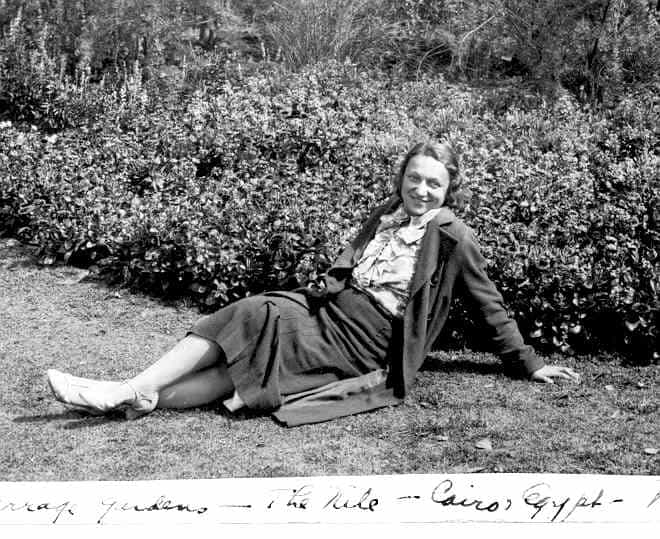 errage gardens — The Nile — Cairo, Egypt —